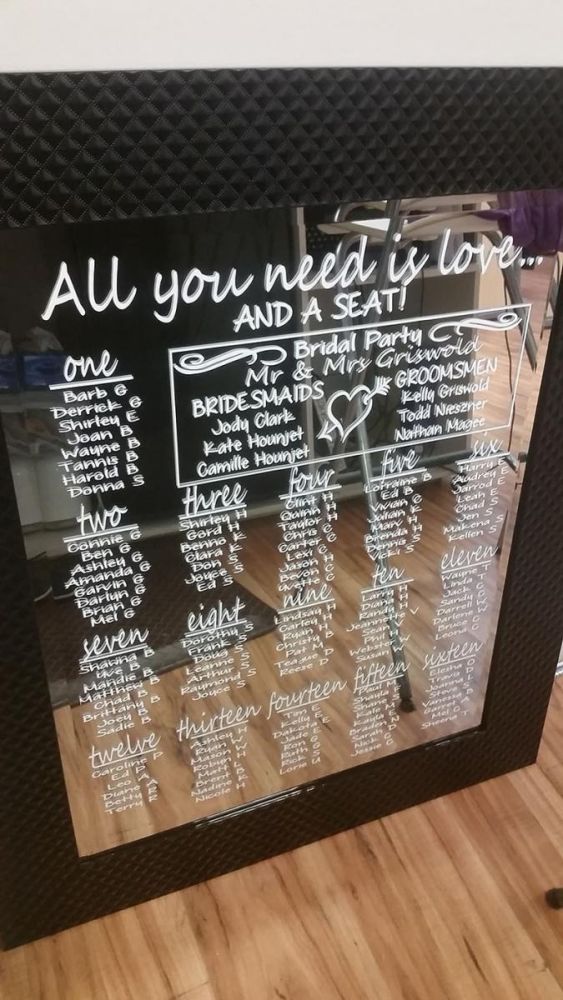 All you need is love...
AND A SEAT!
Bridal Party
Mr & Mrs Griswold
BRIDESMAIDS
Jody Clark
Kate Hounjet
Camille Hounjet
GROOMSMEN
Kelly Griswold
Todd Nieszner
Nathan Magee
one
Barb G
Derrick G
Shirley E
Joan B
Wayne B
Tannis B
Harold B
Donna S
two
Connie G
Ben G
Ashley G
Amanda G
Garvin G
Darlyn G
Brian G
Mel G
three
Shirley H
Gord H
Benno K
Clara K
Don S
Joyce S
Ed S
four
Clint H
Quinn H
Taylor H
Chris C
Carter C
Lexi C
Jason H
Bevon C
Yvette C
five
Lorraine B
Ed B
Vivian H
Julian K
Marv H
Brenda H
Dennis S
Vicki S
six
Harry E
Audrey E
Jarrod E
Leah E
Chad S
Jen S
Makena S
Kellen S
seven
Shawna B
Uve B
Mandie B
Matthew B
Chad B
Brittany B
Joey B
Sadie B
eight
Dorothy S
Frank S
Doug S
Leanne S
Arthur S
Raymond S
Joyce S
nine
Lindsay H
Carley H
Ryan H
Christy B
Pat M
Teague D
Reese D
ten
Larry H
Diana H
Randy H
Jeannette V
Sean
Phil
Webster
Susan
eleven
Wayne T
Linda T
Jack C
Sandy C
Darrell W
Darlene W
Bruce C
Leona C
twelve
Caroline P
Ed P
Leo A
Diane A
Betty R
Terry R
thirteen
Ashley H
Ryan W
Mason W
Robyn H
Matt L
Brent B
Nadine K
Nicole H
fourteen
Tim E
Kelly E
Dakota E
Jade E
Ron G
Ruth G
Rick S
Lorie U
fifteen
Paul F
Shayla F
Shane H
Kati H
Kayla E
Braidan N
Sarah D
Nick G
Jessie G
sixteen
Elesha D
Travis D
Joanna L
Steve L
Vanessa O
Garret O
Mel O
Sheena T